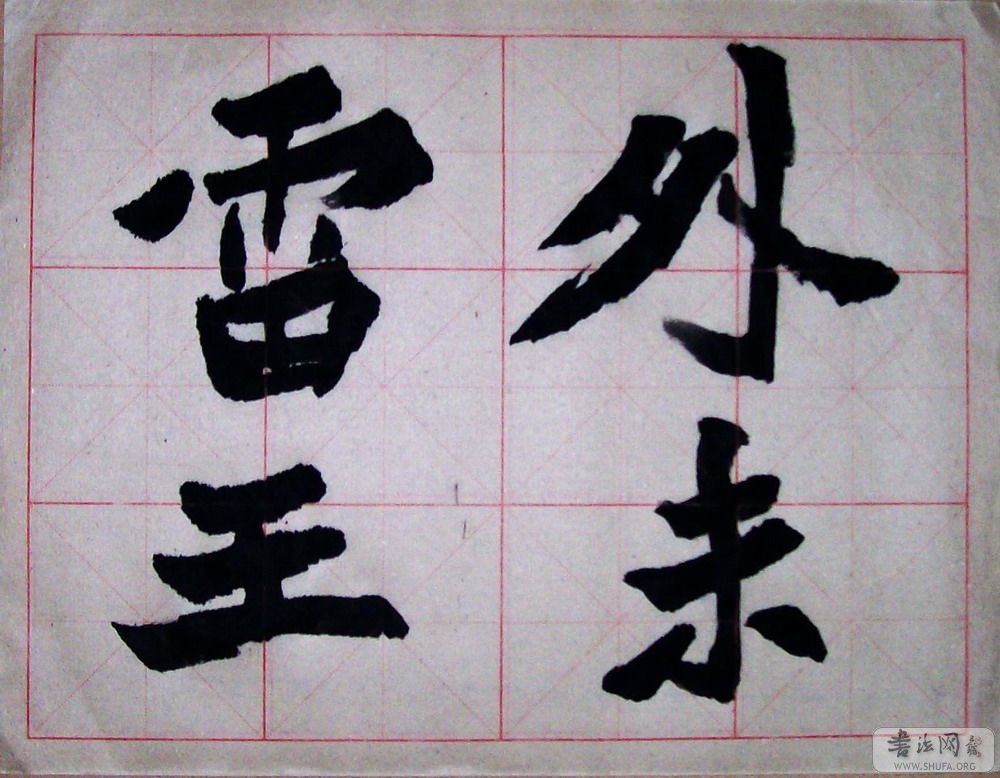 外未
雷王
書法网
WWW.SHUFA.ORG